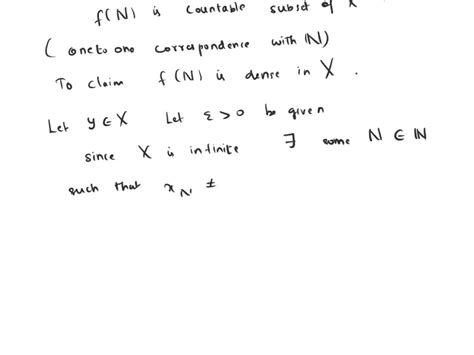 f(N) is countable subset of X
( one to one correspondence with ℕ)
To claim f(N) is dense in X .
Let y ∈ X Let ε > 0 be given
since X is infinite ∃ some N ∈ ℕ
such that x_N ≠